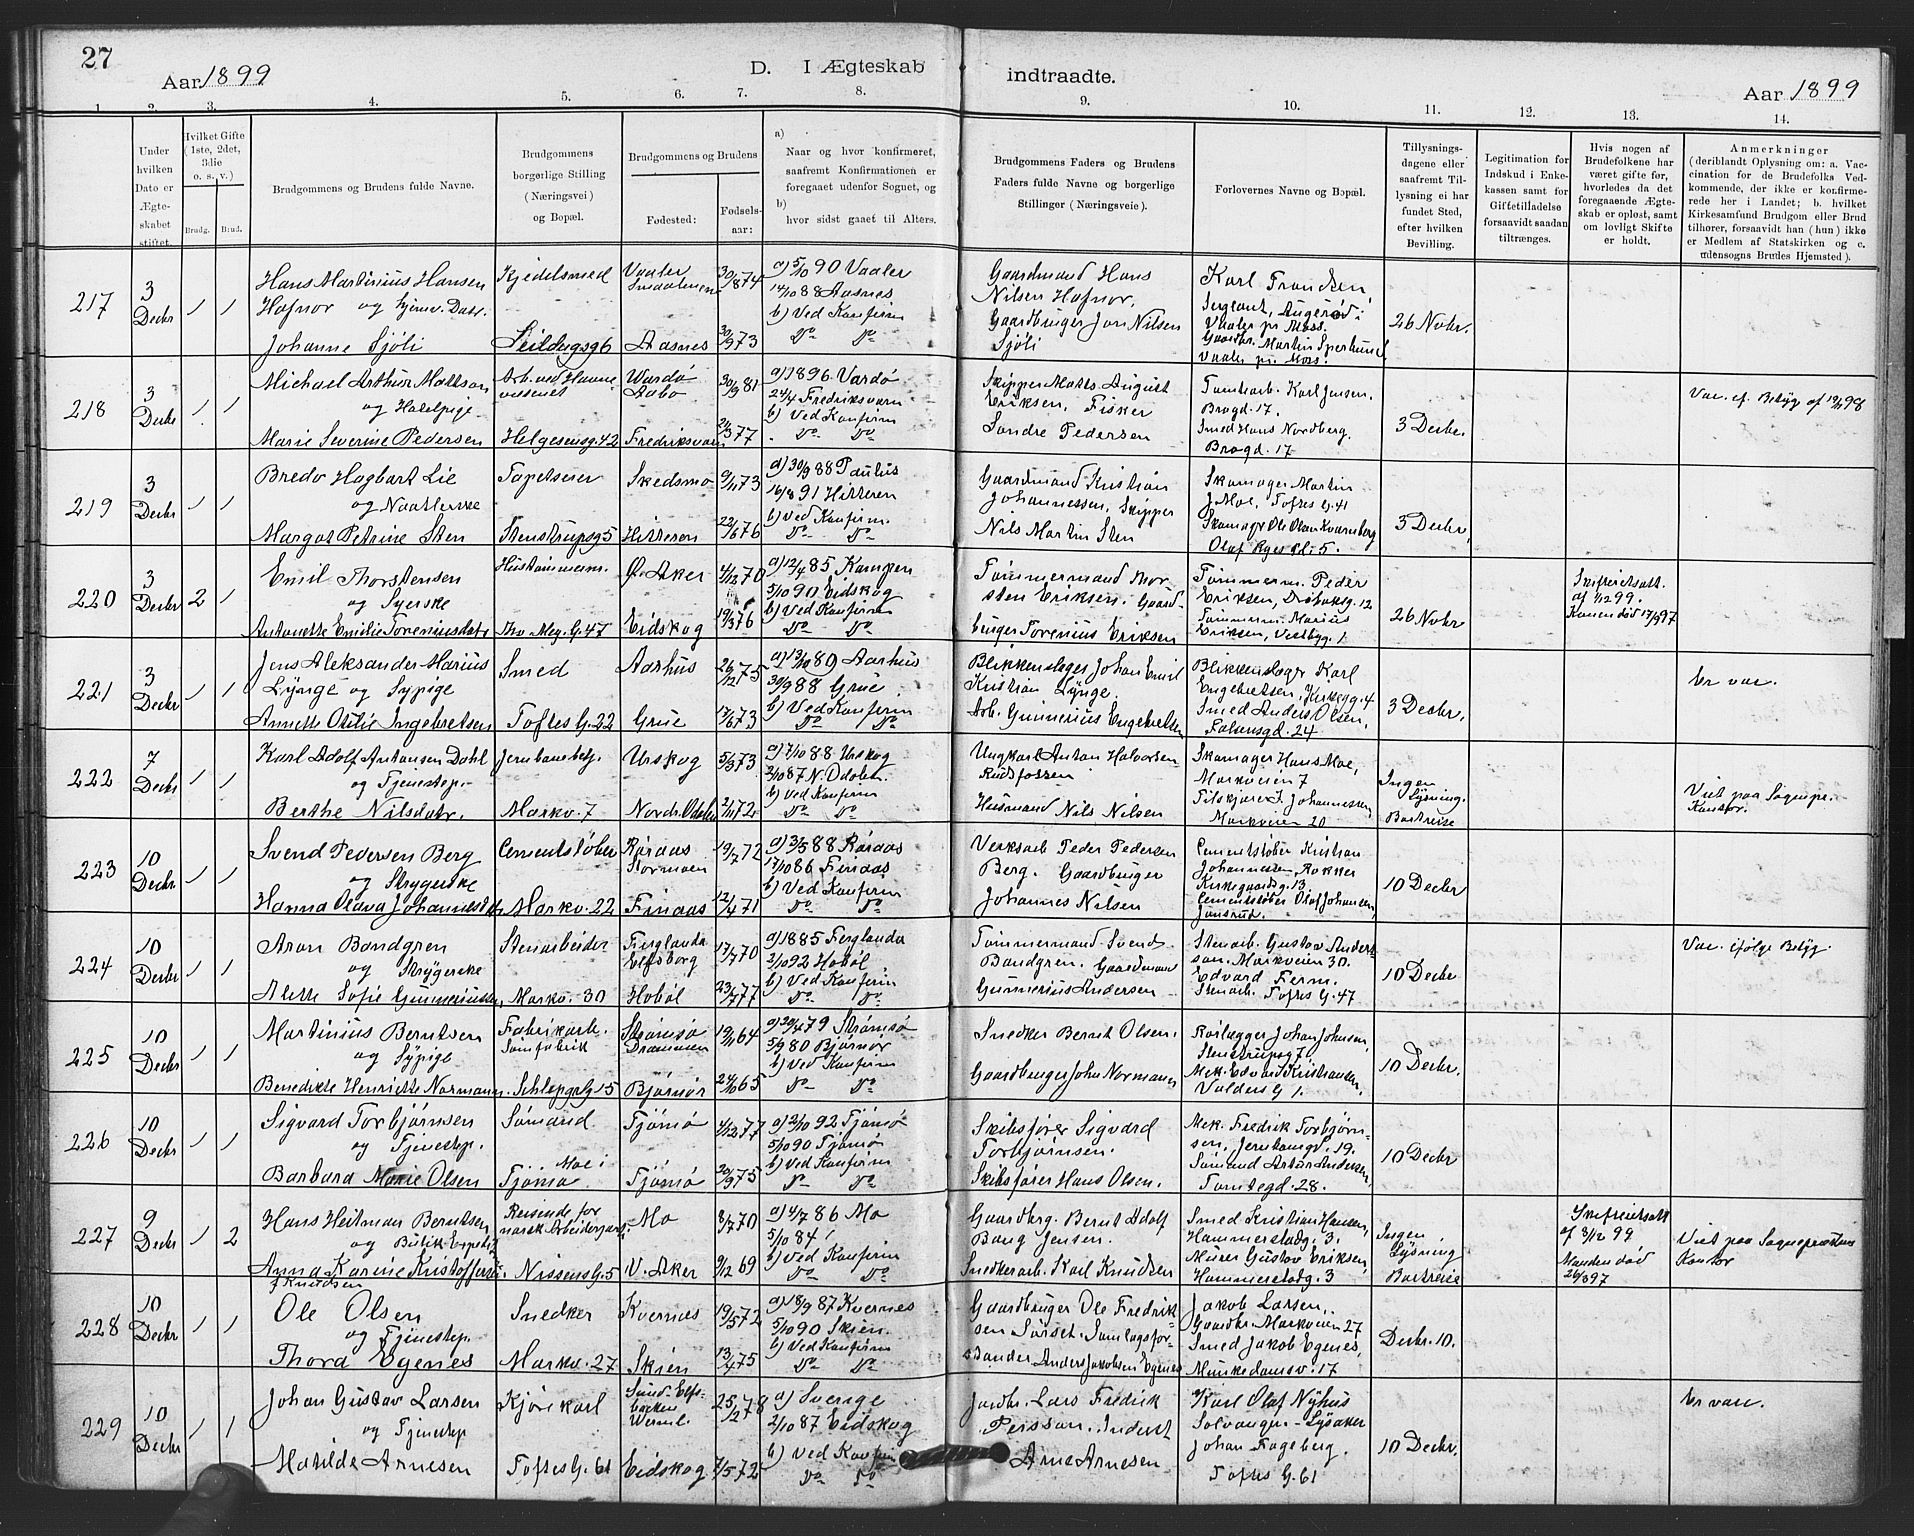 27
Aar 1899
D. I Ægteskab indtraadte.
Aar 1899
1. 2. 3. 4. 5. 6. 7. 8. 9. 10. 11. 12. 13. 14.
Under hvilken Dato er Ægteskabet stiftet.
Hvilket Gifte (1ste, 2det, 3die o. s. v.)
Brudg. Brud.
Brudgommens og Brudens fulde Navne.
Brudgommens borgerlige Stilling (Næringsvei) og Bopæl.
Brudgommens og Brudens
Fødested:
Fødselsaar:
a) Naar og hvor konfirmeret, saafremt Konfirmationen er foregaaet udenfor Sognet, og
b) hvor sidst gaaet til Alters.
Brudgommens Faders og Brudens Faders fulde Navne og borgerlige Stillinger (Næringsveie).
Forlovernes Navne og Bopæl.
Tillysningsdagene eller saafremt Tillysning ei har fundet Sted, efter hvilken Bevilling.
Legitimation for Indskud i Enkekassen samt for Giftetilladelse forsaavidt saadan tiltrænges.
Hvis nogen af Brudefolkene har været gifte før, hvorledes da det foregaaende Ægteskab er opløst, samt om lovligt Skifte er holdt.
Anmerkninger (deriblandt Oplysning om: a. Vaccination for de Brudefolks Vedkommende, der ikke er konfirmerede her i Landet; b. hvilket Kirkesamfund Brudgom eller Brud tilhører, forsaavidt han (hun) ikke er Medlem af Statskirken og c. udensogns Brudes Hjemsted).
217
3 Decbr
1 1
Hans Martinius Hansen
Hafnor og
Johanne Sjöli
Kjedelsmed
Seildugsg 6
Vaaler
Aasnes
30/1 874
30/9 73
a) 5/10 90 Vaaler
14/10 88 Aasnes
b) Ved Konfirm
Do Do
Gaardmand Hans
Nilsen Hafnor.
Gaardbruger Jon Nilsen
Sjöli
Karl Frandsen
Sergeant,
Vaaler pr Moss.
Gaardbr. Martin
Vaaler pr. Moss.
26 Novbr.
218
3 Decbr
1 1
Michael Arthur Mattson
og Hotelpige
Marie Severine Pedersen
Arb. ved Havnevæsenet
Helgesensg. 42
Vardø
Fredriksværn
30/9 81
77
a) 1896 Vardø
Fredriksværn
b) Ved Konfirm
Do Do
Skipper Matts August
Eriksen, Fisker
Sondre Pedersen
Tomtearb. Karl Jensen.
Brogd. 17.
Smed Hans Nordberg.
Brogd. 17
3 Decbr.
Vac. ef. Betyg af 98
219
3 Decbr
1 1
Bredo Hagbart Lie
og
Margot Petrine Sten
Tapetserer
Stenstrupsg 5
Skedsmo
Hitteren
9/11 73
22/6 76
a) 30/9 88 Paulus
16/8 91 Hitteren
b) Ved Konfirm
Do Do
Gaardmand Kristian
Johannessen, Skipper
Nils Martin Sten
Skomager Martin
J Moe, Toftes G. 41
Skomagr Ole Olsen Kvarnberg
Olaf Ryes Pl. 5.
3 Decbr,
220
3 Decbr
2 1
Emil Thorstensen
og Syerske
Antonette Emilie Toreniusdatr
Hustømmerm.
Thv Mey. G. 47
Ø. Aker
Eidskog
4/12 70
19/3 76
a) 12/4 85 Kampen
5/10 90 Eidskog
b) Ved Konfirm
Do Do
Tømmermand Thorsten Eriksen. Gaardbruger Torenius Eriksen
Tømmerm. Peder
Eriksen, Drøbaksg. 12
Tømmerm. Marius
Eriksen, Vestbyg. 1
26 Novbr
Skifteattest
af 1/12 99.
Konen død 17/9 97
221
3 Decbr
1 1
Jens Aleksander Marius
Lynge og Sypige
Annette Otilie Ingebretsen
Smed
Toftes G. 22
Aarhus
Grue
26/12 75
17/6 73
a) 13/10 89 Aarhus
30/9 88 Grue
b) Ved Konfirm
Do Do
Blikkenslager Johan Emil
Kristian Lynge.
Arb. Gunnerius Engebretsen
Blikkenslager Karl
Engebretsen, Kirkegg. 4
Smed Anders Olsen,
Falsensgd. 24
3 Decbr.
Er vac.
222
7 Decbr
1 1
Karl Adolf Antonsen Dahl
og Tjenestep.
Berthe Nilsdatr.
Jernbanebetj.
Markv. 7
Urskog
Nordr. Odalen
5/3 73
2/11 72
a) 7/10 88 Urskog
2/10 87 N. Odalen
b) Ved Konfirm
Do Do
Ungkarl Anton Halvorsen
Rudsfossen
Husmand Nils Nilsen
Skomager Hans Moe,
Markveien 7
Filskjærer J. Johannessen,
Markveien 20
Ingen
Lysning.
Bortreise
Viet paa Sognepr.
Kontor.
223
10 Decbr
1 1
Svend Pedersen Berg
og Strygerske
Hanna Olava Johannesdtr
Cementstøber
Markv. 22
Røraas
Finaas
19/7 72
12/4 71
a) 3/5 88 Røraas
17/10 86 Finaas
b) Ved Konfirm
Do Do
Verksarb Peder Pedersen
Berg. Gaardbruger
Johannes Nilsen
Cementstøber Kristian
Johannesen, Rokker
Kirkegaardsg. 13
Cementstøber Olaf Johansen,
Jonsrud.
10 Decbr
224
10 Decbr
1 1
Aron Bondgren
og Strygerske
Alette Sofie Gunneriusdtr
Stenarbeider
Markv. 30
Ferglanda
Elfsborg
Hobøl
17/7 70
23/7 77
a) 1885 Ferglanda
2/10 92 Hobøl
b) Ved Konfirm
Do Do
Tømmermand Svend
Bondgren. Gaardmand
Gunnerius Andersen
Stenarb. Gustav Andersson. Markveien 30.
Edvard Ferm.
Stenarb. Toftes G. 47
10 Decbr
Vac. ifølge Betyg.
225
10 Decbr
1 1
Martinius Berntsen
og Sypige
Benedikte Henriette Normann.
Fabrikarb.
Sømfabrik
Schlepgrs G 15
Strømsø
Drammen
Bjørnør
19/11 64
24/10 65
a) 20/4 79 Strømsø
5/9 80 Bjørnør
b) Ved Konfirm
Do Do
Snedker Bernt Olsen.
Gaardbruger John Normann
Rørlægger Johan Johnsen,
Stenstrupsg 7
Mek. Edvard Kristiansen
Valders G 1.
10 Decbr.
226
10 Decbr
1 1
Sigvard Torbjørnsen
og Tjenestep.
Barbara Marie Olsen
Sømand
Moe i
Tjømø
Tjømø
Tjømø
4/12 77
20/9 75
a) 2/10 92 Tjømø
5/10 90 Tjømø
b) Ved Konfirm
Do Do
Skibsfører Sigvard
Torbjørnsen.
Skibsfører Hans Olsen.
Mek. Fredrik Torbjørnsen, Jernbanegd. 19.
Sømand Artur Andersen,
Tomtegd. 28.
10 Decbr
227
9 Decbr
1 2
Hans Heitman Berntsen
og Butik Expedit
Anna Karine Kristoffersen
f Knudsen
Reisende for
norsk Arbeider
Nissens G. 5
Mo
V. Aker
3/7 70
9/12 69
a) 4/7 86 Mo
5/10 84
b) Ved Konfirm
Do Do
Gaardbrg. Bernt Adolf
Bang Jensen.
Snedkerarb. Karl Knudsen
Smed Kristian Hansen,
Hammerstadg. 3.
Murer Gustav Eriksen,
Hammerstadg. 3
Ingen
Lysning
Bortreise
Skifteattest
af 8/12 99
Manden død
26/3 97
Viet paa Sogneprestens
Kontor
228
10 Decbr
1 1
Ole Olsen
og Tjenestep
Thora Egenes
Snedker
Markv. 27
Kvernes
Skien
19/5 72
13/4 75
a) 18/9 87 Kvernes
5/10 90 Skien
b) Ved Konfirm
Do Do
Gaardbruger Ole Fredriksen Sørset. Samlagsforstander Anders Jakobsen Egenes
Jakob Larsen,
Gaardbr. Markveien 27
Smed Jakob Egenes,
Munkedamsv. 17
Decbr. 10.
229
10 Decbr
1 1
Johan Gustav Larsen
og Tjenestep
Matilde Arnesen
Kjørekarl
Toftes G. 61
Verml.
Eidskog
25/2 78
7/5 72
a) Sverige
2/10 87 Eidskog
b) Ved Konfirm
Do Do
Jordbr. Lars Fredrik
Persson. Inderst
Arne Arnesen
Karl Olaf Nyhus
Solvangen - Lysaker
Johan Fageberg.
Toftes G. 61
10 Decbr.
Er vac.